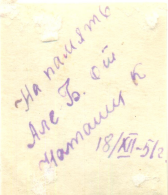 На память
Але Б. от
Наташи К
18/XII-51г.